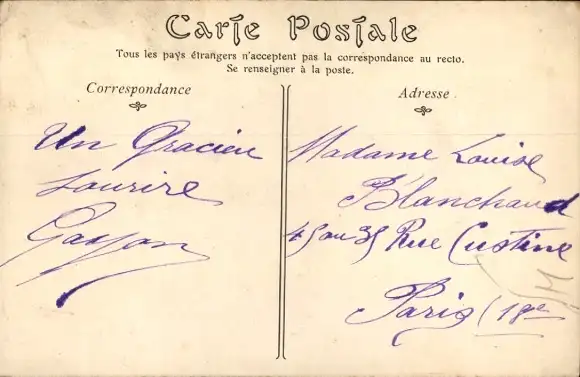 Carte Postale
Tous les pays étrangers n'acceptent pas la correspondance au recto.
Se renseigner à la poste.
Correspondance
Un Gracieu
Sourire
Gaston
Adresse
Madame Louise
Blanchaud
45 au 35 Rue Custine
Paris (18e